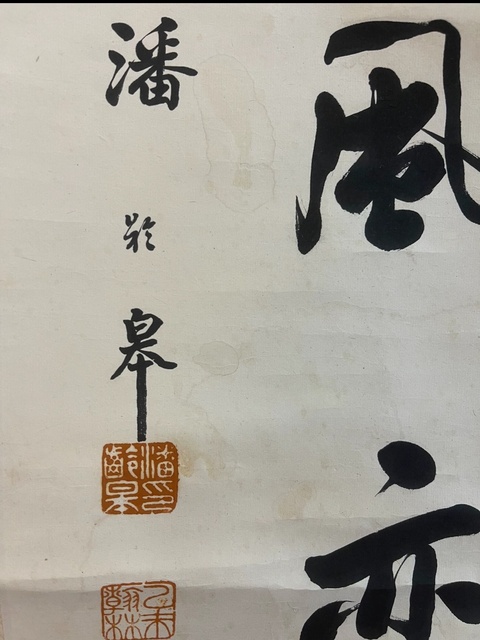 風亦
潘齡皋
潘印齡皋
乙未翰林